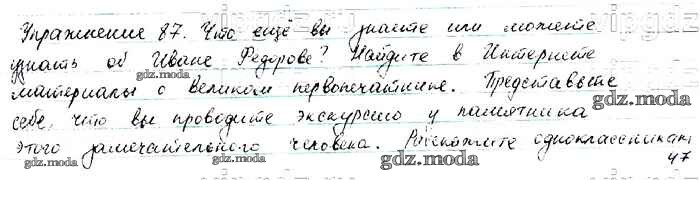 Упражнение 87. Что ещё вы знаете или можете
узнать об Иване Федорове? Найдите в Интернете
материалы о великом первопечатнике. Представьте
себе, что вы проводите экскурсию у памятника
этого замечательного человека. Расскажите одноклассникам
47
gdz.moda
gdz.moda
gdz.moda
gdz.moda
gdz.moda